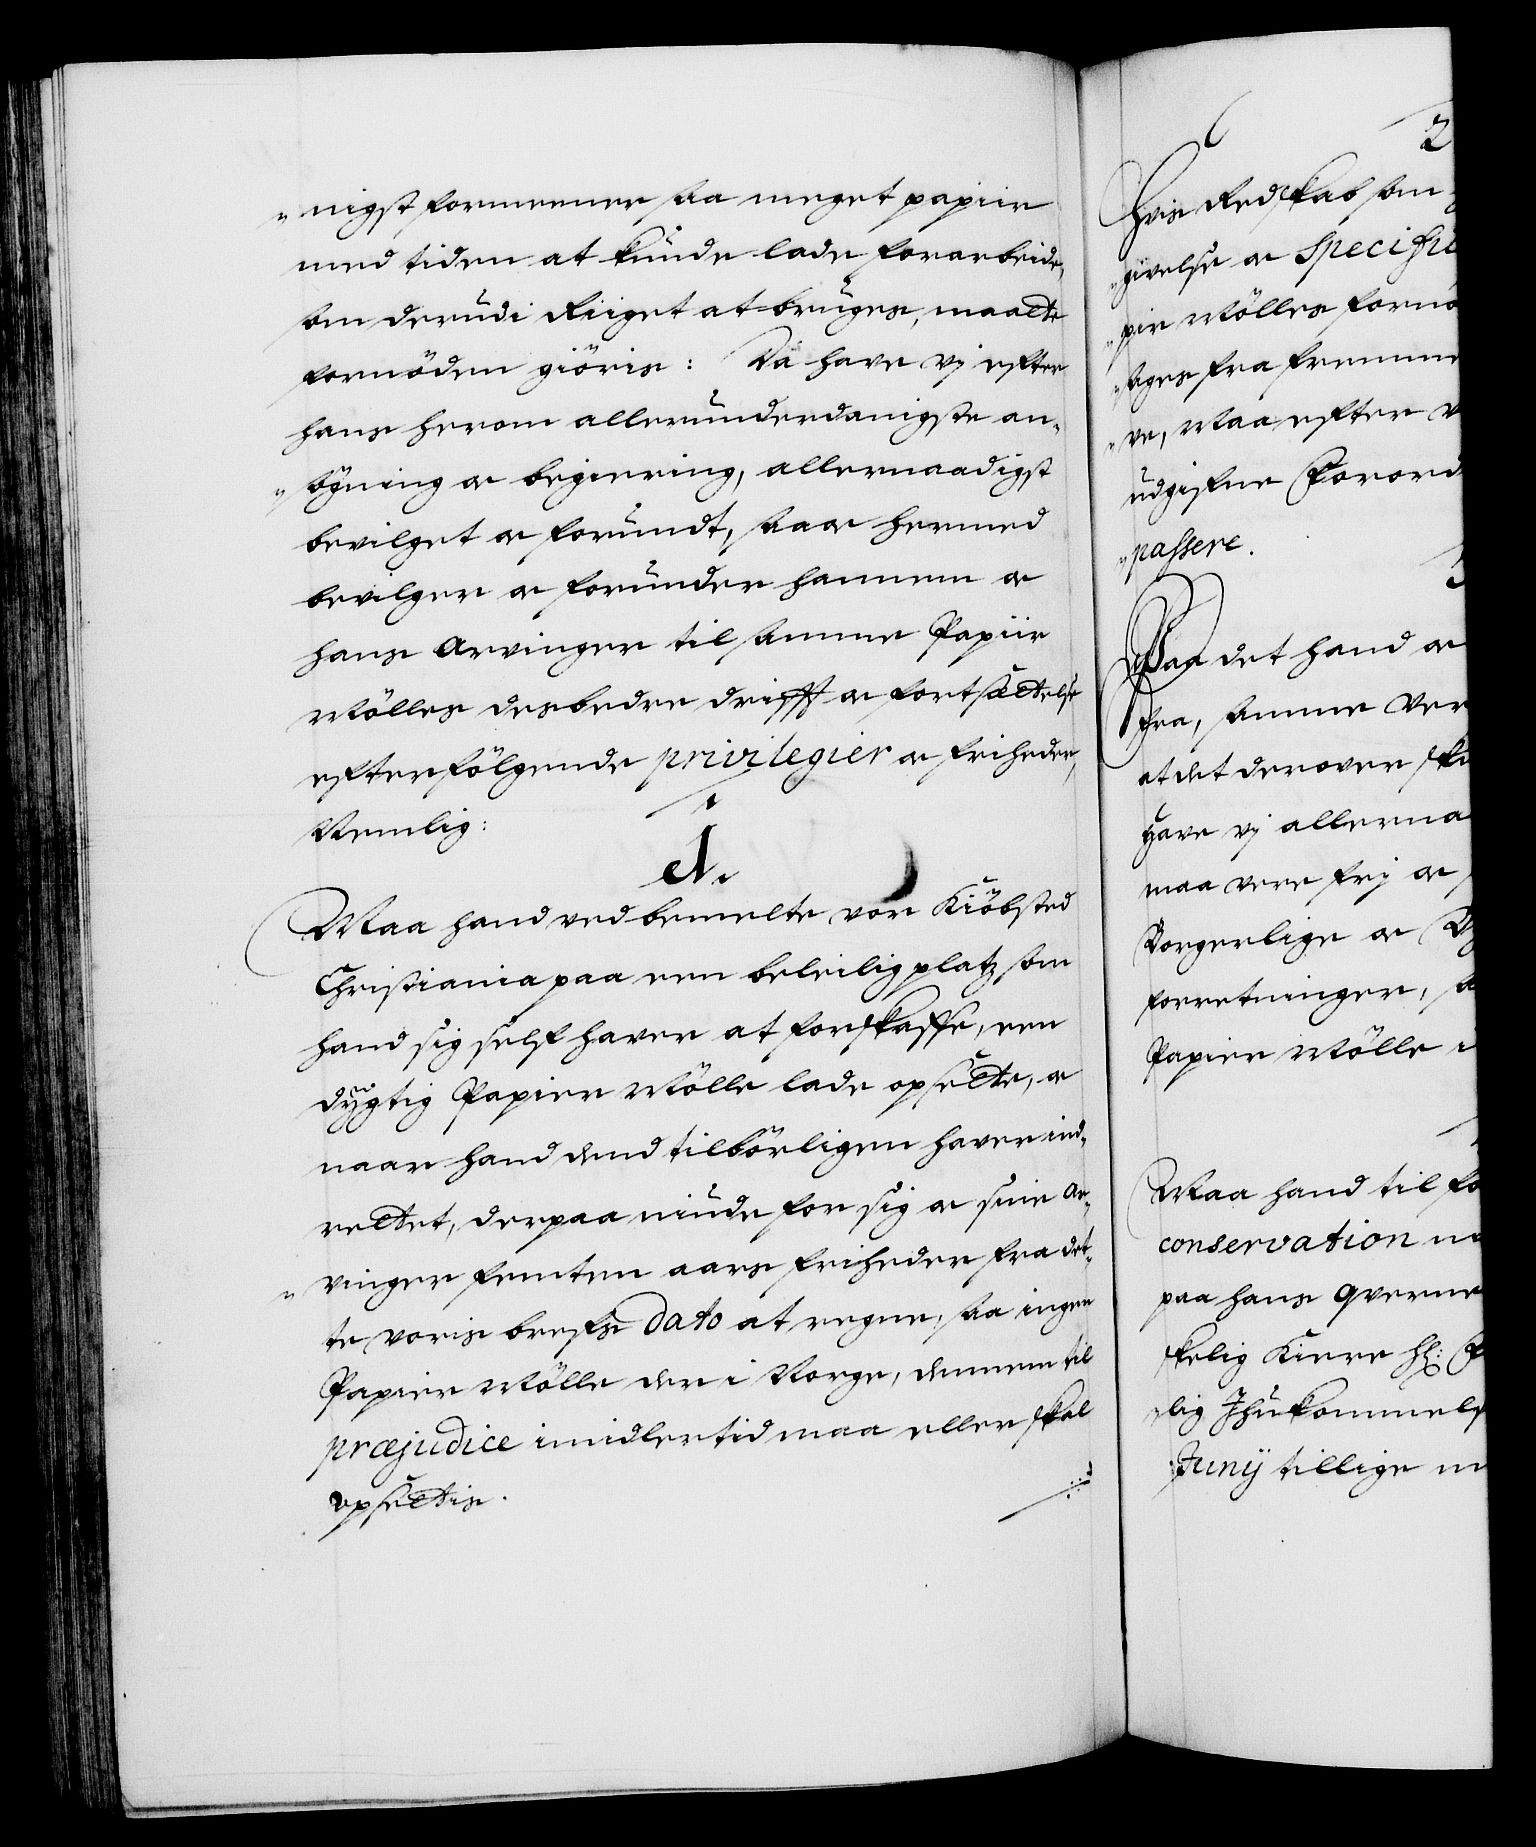 nigst formeener saa meget papiir
med tiden at kunde lade forarbeide,
som derudi Riiget at bruges, maatte
fornöden giöris: Da have vj efter
hans herom allerunderdanigste an„
„ sögning oc begiering, allernaadigst
bevilget oc forundt, saa oc hermed
bevilger oc forunder hannem oc
hans Arvinger til samme Papiir
Mölles desbedre drifft oc fortsættelse
efterfölgende privilegier oc friheder,
Nemlig:
1.
Maa hand ved bemelte vor Kiöbsted
Christiania paa een beleilig platz som
hand sig self haver at forskaffe, een
dygtig Papiir Mölle lade opsette, oc
naar hand dend tilbörligen haver ind„
rettet, derpaa niude for sig oc sine Ar„
„ vinger femten aars friheder fra det„
te voris brefs Dato at regne, saa ingen
Papiir Mölle der i Norge, dennem til
præjudice imidlertid maa eller skal
opsettis.
2
Hvis Redskab som
givelse oc Specifi
pir Mölles forn
tages fra fremme
ve, Maa efter v
udgifne Forord
passere.
3
Paa det hand oc
fra, samme Ver
at det derover ska
Have vj allerna
maa vere frj oc
Borgerlige oc By
forretninger, s
Papiir Mölle i
Maa hand til fo
conservation
paa hans qverne
skelig Kiere Hr: F
lig Ihukommels
Junij tillige m